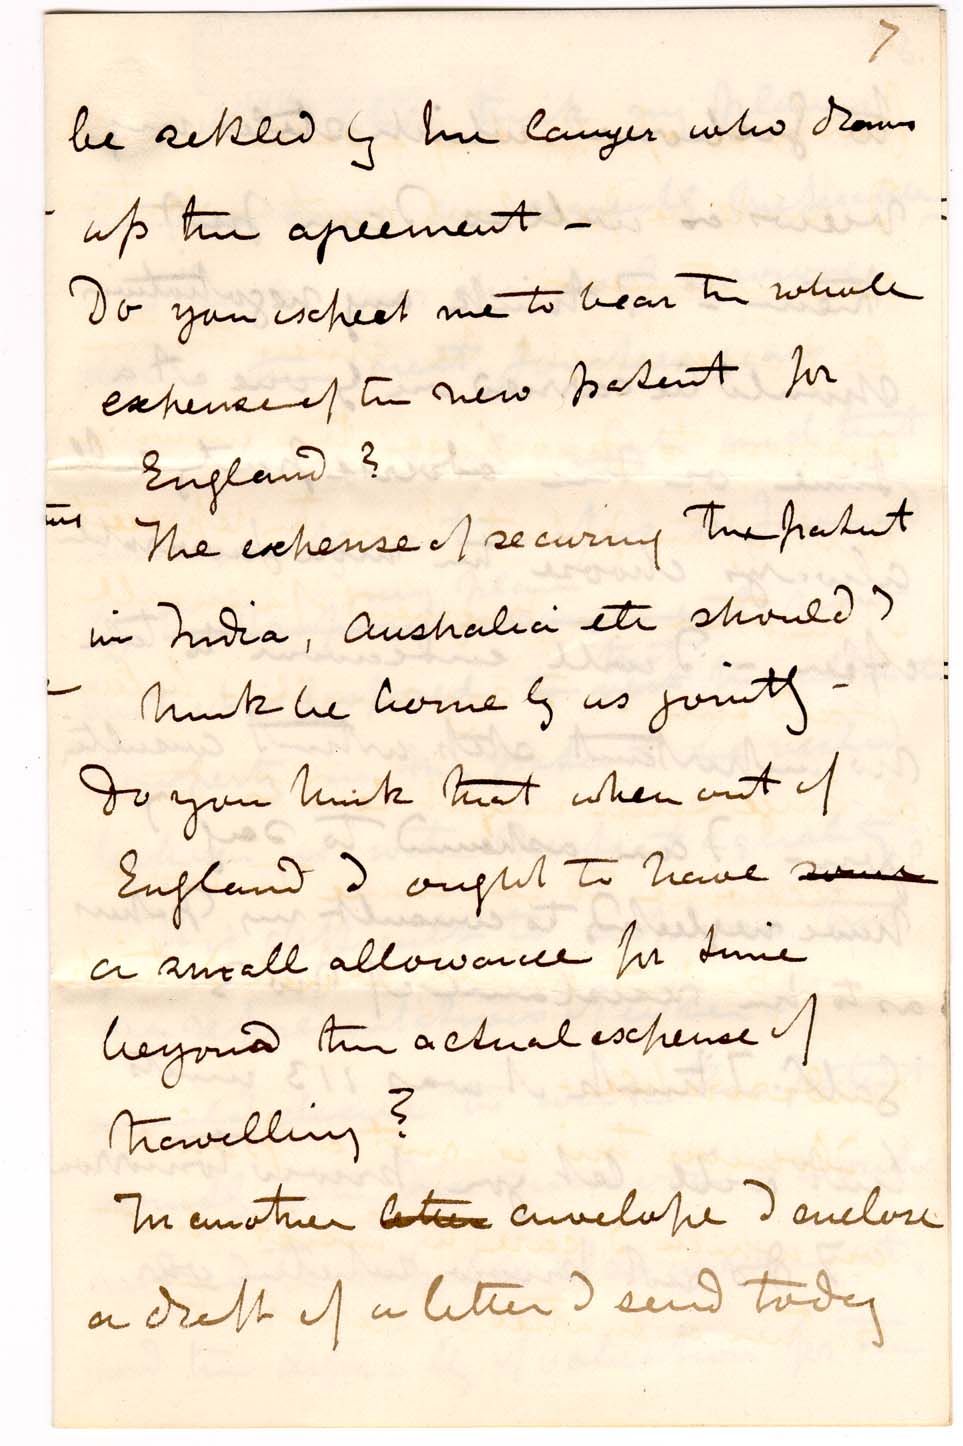 7
be settled by the lawyer who draws
up the agreement –
Do you expect me to bear the whole
expense of the new patent for
England?
The expense of securing the patent
in India, Australia etc should I
think be borne by us jointly –
Do you think that when out of
England I ought to have some
a small allowance for time
beyond the actual expense of
travelling?
In another letter envelope I enclose
a draft of a letter I send today